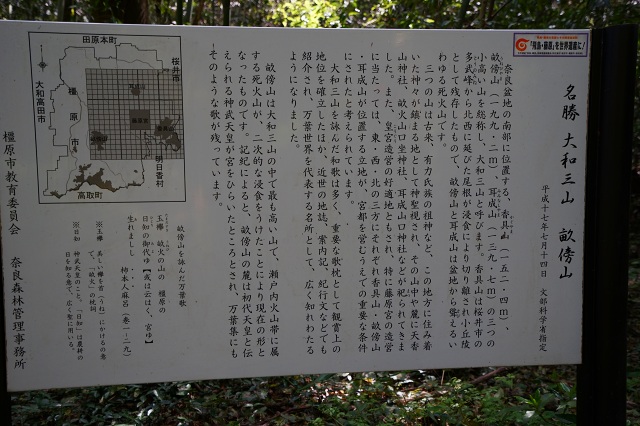 「飛鳥・藤原」を世界遺産に！
名勝 大和三山 畝傍山
平成十七年七月十四日 文部科学省指定
奈良盆地の南部に位置する、香具山（一五二．四ｍ）、
畝傍山（一九九．二ｍ）、耳成山（一三九．七ｍ）の三つの
小高い山を総称し、大和三山と呼びます。香具山は桜井市の
多武峰から北西に延びた尾根が浸食により切り離され小丘陵
として残存したもので、畝傍山と耳成山は盆地から聳えるい
わゆる死火山です。
三つの山は古来、有力氏族の祖神など、この地方に住み着
いた神々が鎮まる地として神聖視され、その山中や麓に天香
山神社、畝火山口坐神社、耳成山口神社などが祀られてきま
した。また、皇宮造営の好適地ともされ、特に藤原宮の造営
に当たっては、東・西・北の三方にそれぞれ香具山・畝傍山
・耳成山が位置する立地が、宮都を営むうえでの重要な条件
にされたと考えられています。
大和三山を詠んだ和歌は多く、重要な歌枕として観賞上の
地位を確立したほか、近世の地誌、案内記、紀行文などでも
紹介され、万葉世界を代表する名所として、広く知れわたる
ようになりました。
畝傍山は大和三山の中で最も高い山で、瀬戸内火山帯に属
する死火山が、二次的な浸食をうけたことにより現在の形と
なったものです。記紀によると、畝傍山の麓は初代天皇と伝
えられる神武天皇が宮をひらいたところとされ、万葉集にも
そのような歌が残っています。
畝傍山を詠んだ万葉歌
玉襷 畝火の山の 橿原の
日知の御代ゆ【或は云はく、宮ゆ】
生れましし ・・・
柿本人麻呂（巻一－二九）
※玉襷 美しい襷を首（うね）にかけるの意
で、「畝火」の枕詞
※日知 神武天皇のこと、「日知」は農耕の
日を知る意で、広く聖に用いる。
田原本町
桜井市
大和高田市
橿原市
明日香村
高取町
橿原市教育委員会 奈良森林管理事務所